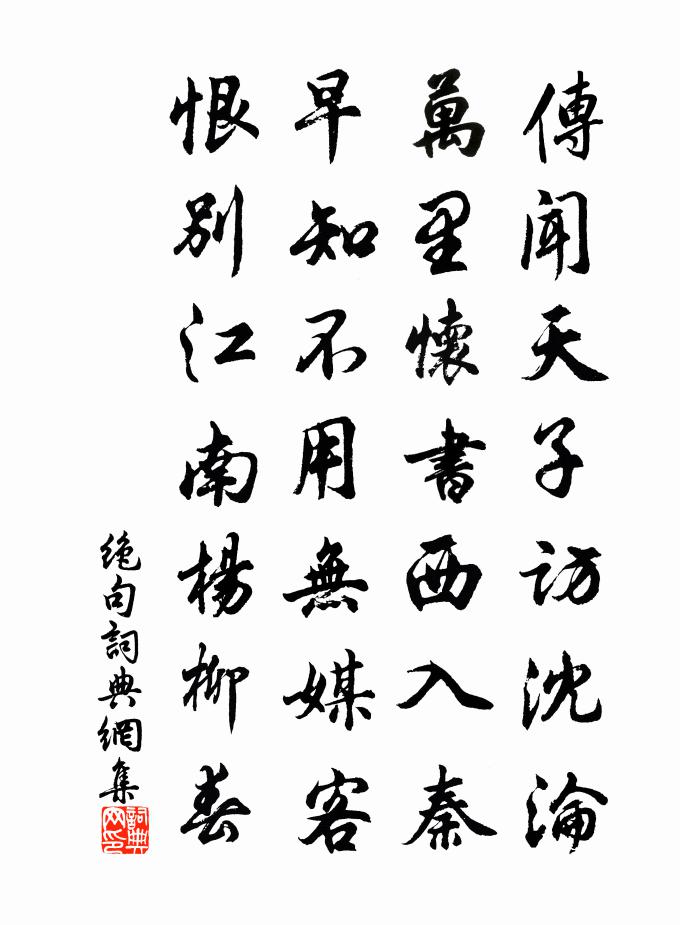 傳聞天子訪沈淪
萬里懷書西入秦
早知不用無媒客
恨別江南楊柳春
絶句詞典網集
詞典
网印